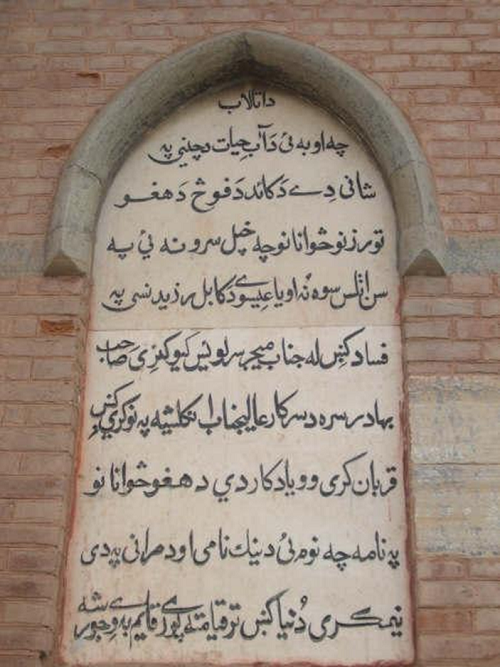 دا تالاب
چه اوبه ئي دَ آب حيات دچينې په
شاني دے دَ کائد دَ فوځ دَ هغو
تورزنو ځوانانو چه خپل سرونه ئي په
سن اتلس سوه نُه اويا عيسوي د کابل رزيدنسي په
فساد کښ له جناب ميجر سر لويس کيوګنري صاحب
بهادر سره د سرکار عاليجناب انګلشيه په نوکري کښ
قربان کړی وو يادګار دي د هغو ځوانانو
په نامه چه نوم ئُ د نيک نامي او د مرانې په دی
نيمګړی دُنيا کښ تر قيامته پورې قايم به وي